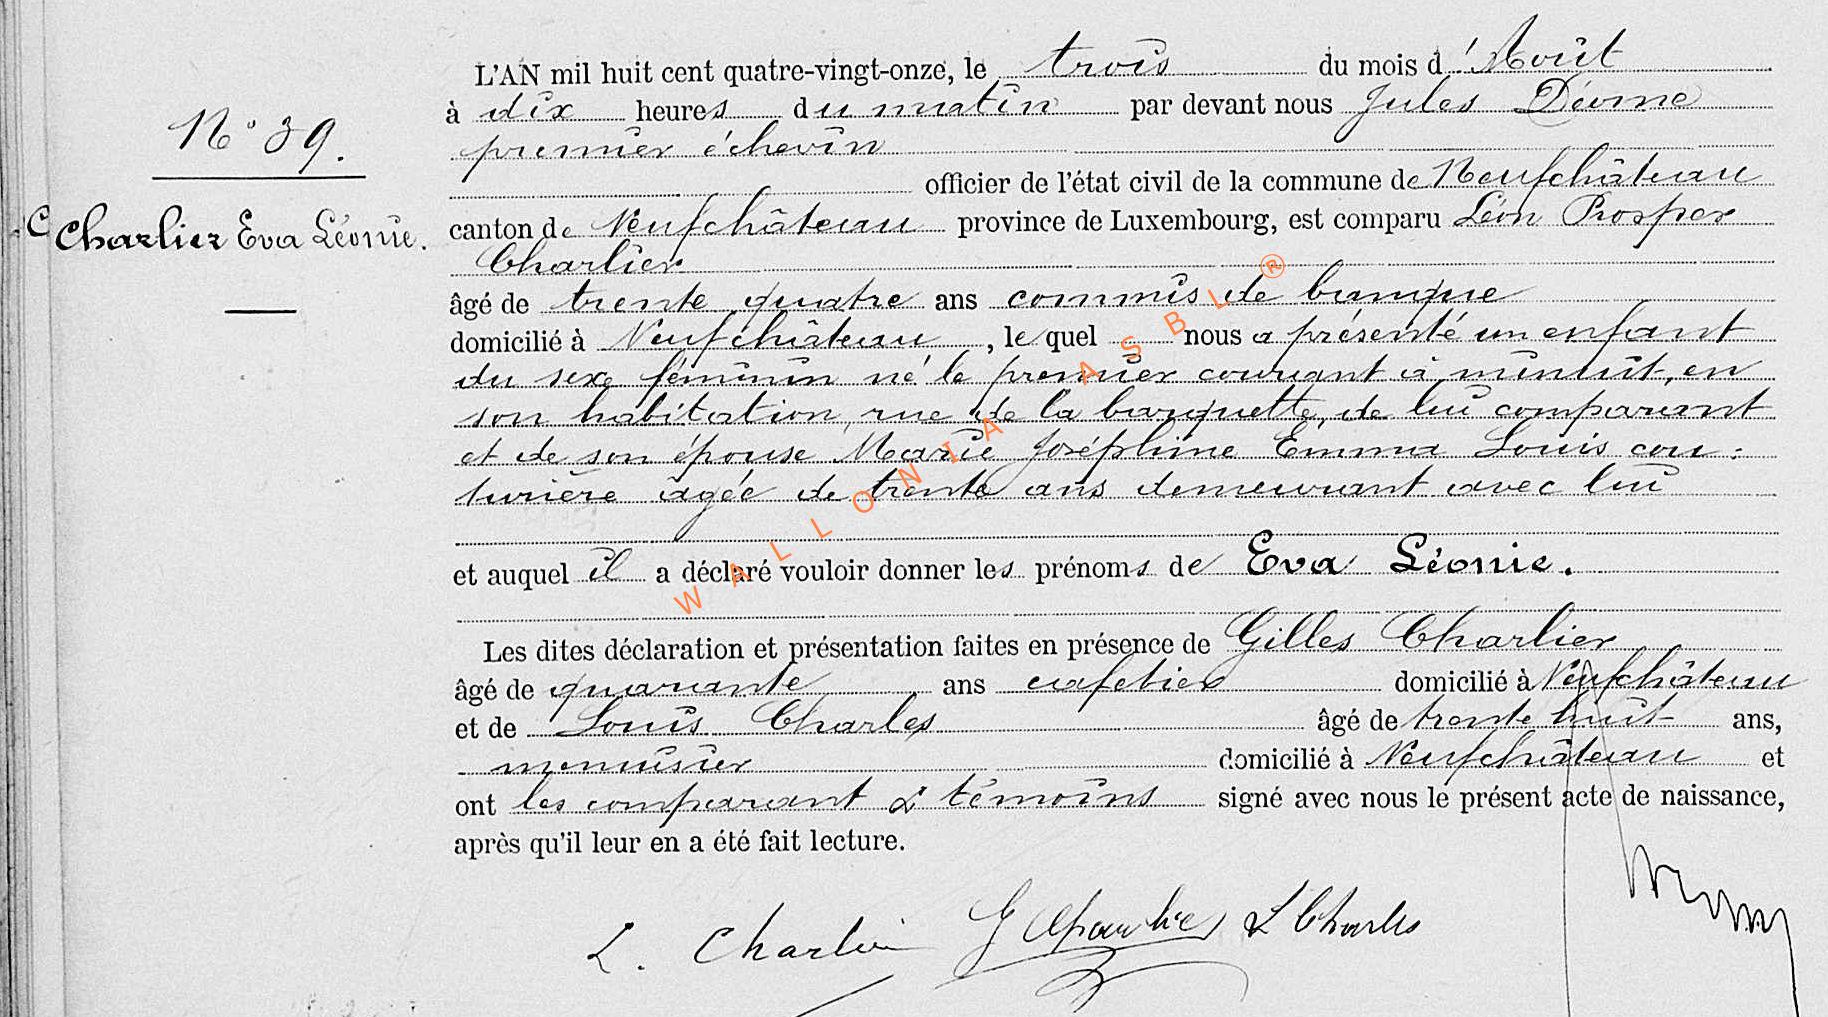 N° 39.
C Charlier Eva Léonie.
L'AN mil huit cent quatre-vingt-onze, le trois du mois d'Août
à dix heures du matin par devant nous Jules Déome
premier échevin
officier de l'état civil de la commune de Neufchâteau
canton de Neufchâteau province de Luxembourg, est comparu Léon Prosper
Charlier
âgé de trente quatre ans commis de banque
domicilié à Neufchâteau, le quel nous a présenté un enfant
du sexe féminin né le premier courant à minuit, en
son habitation, rue de la banquette, de lui comparant
et de son épouse Marie Joséphine Emma Louis cou:
turière âgée de trente ans demeurant avec lui
et auquel il a déclaré vouloir donner les prénoms de Eva Léonie.
Les dites déclaration et présentation faites en présence de Gilles Charlier
âgé de quarante ans cafetier domicilié à Neufchâteau
et de Louis Charles âgé de trente huit ans,
menuisier domicilié à Neufchâteau et
ont les comparant & témoins signé avec nous le présent acte de naissance,
après qu'il leur en a été fait lecture.
L. Charlier G Charlier L Charles
WALLONIA ASBL ®